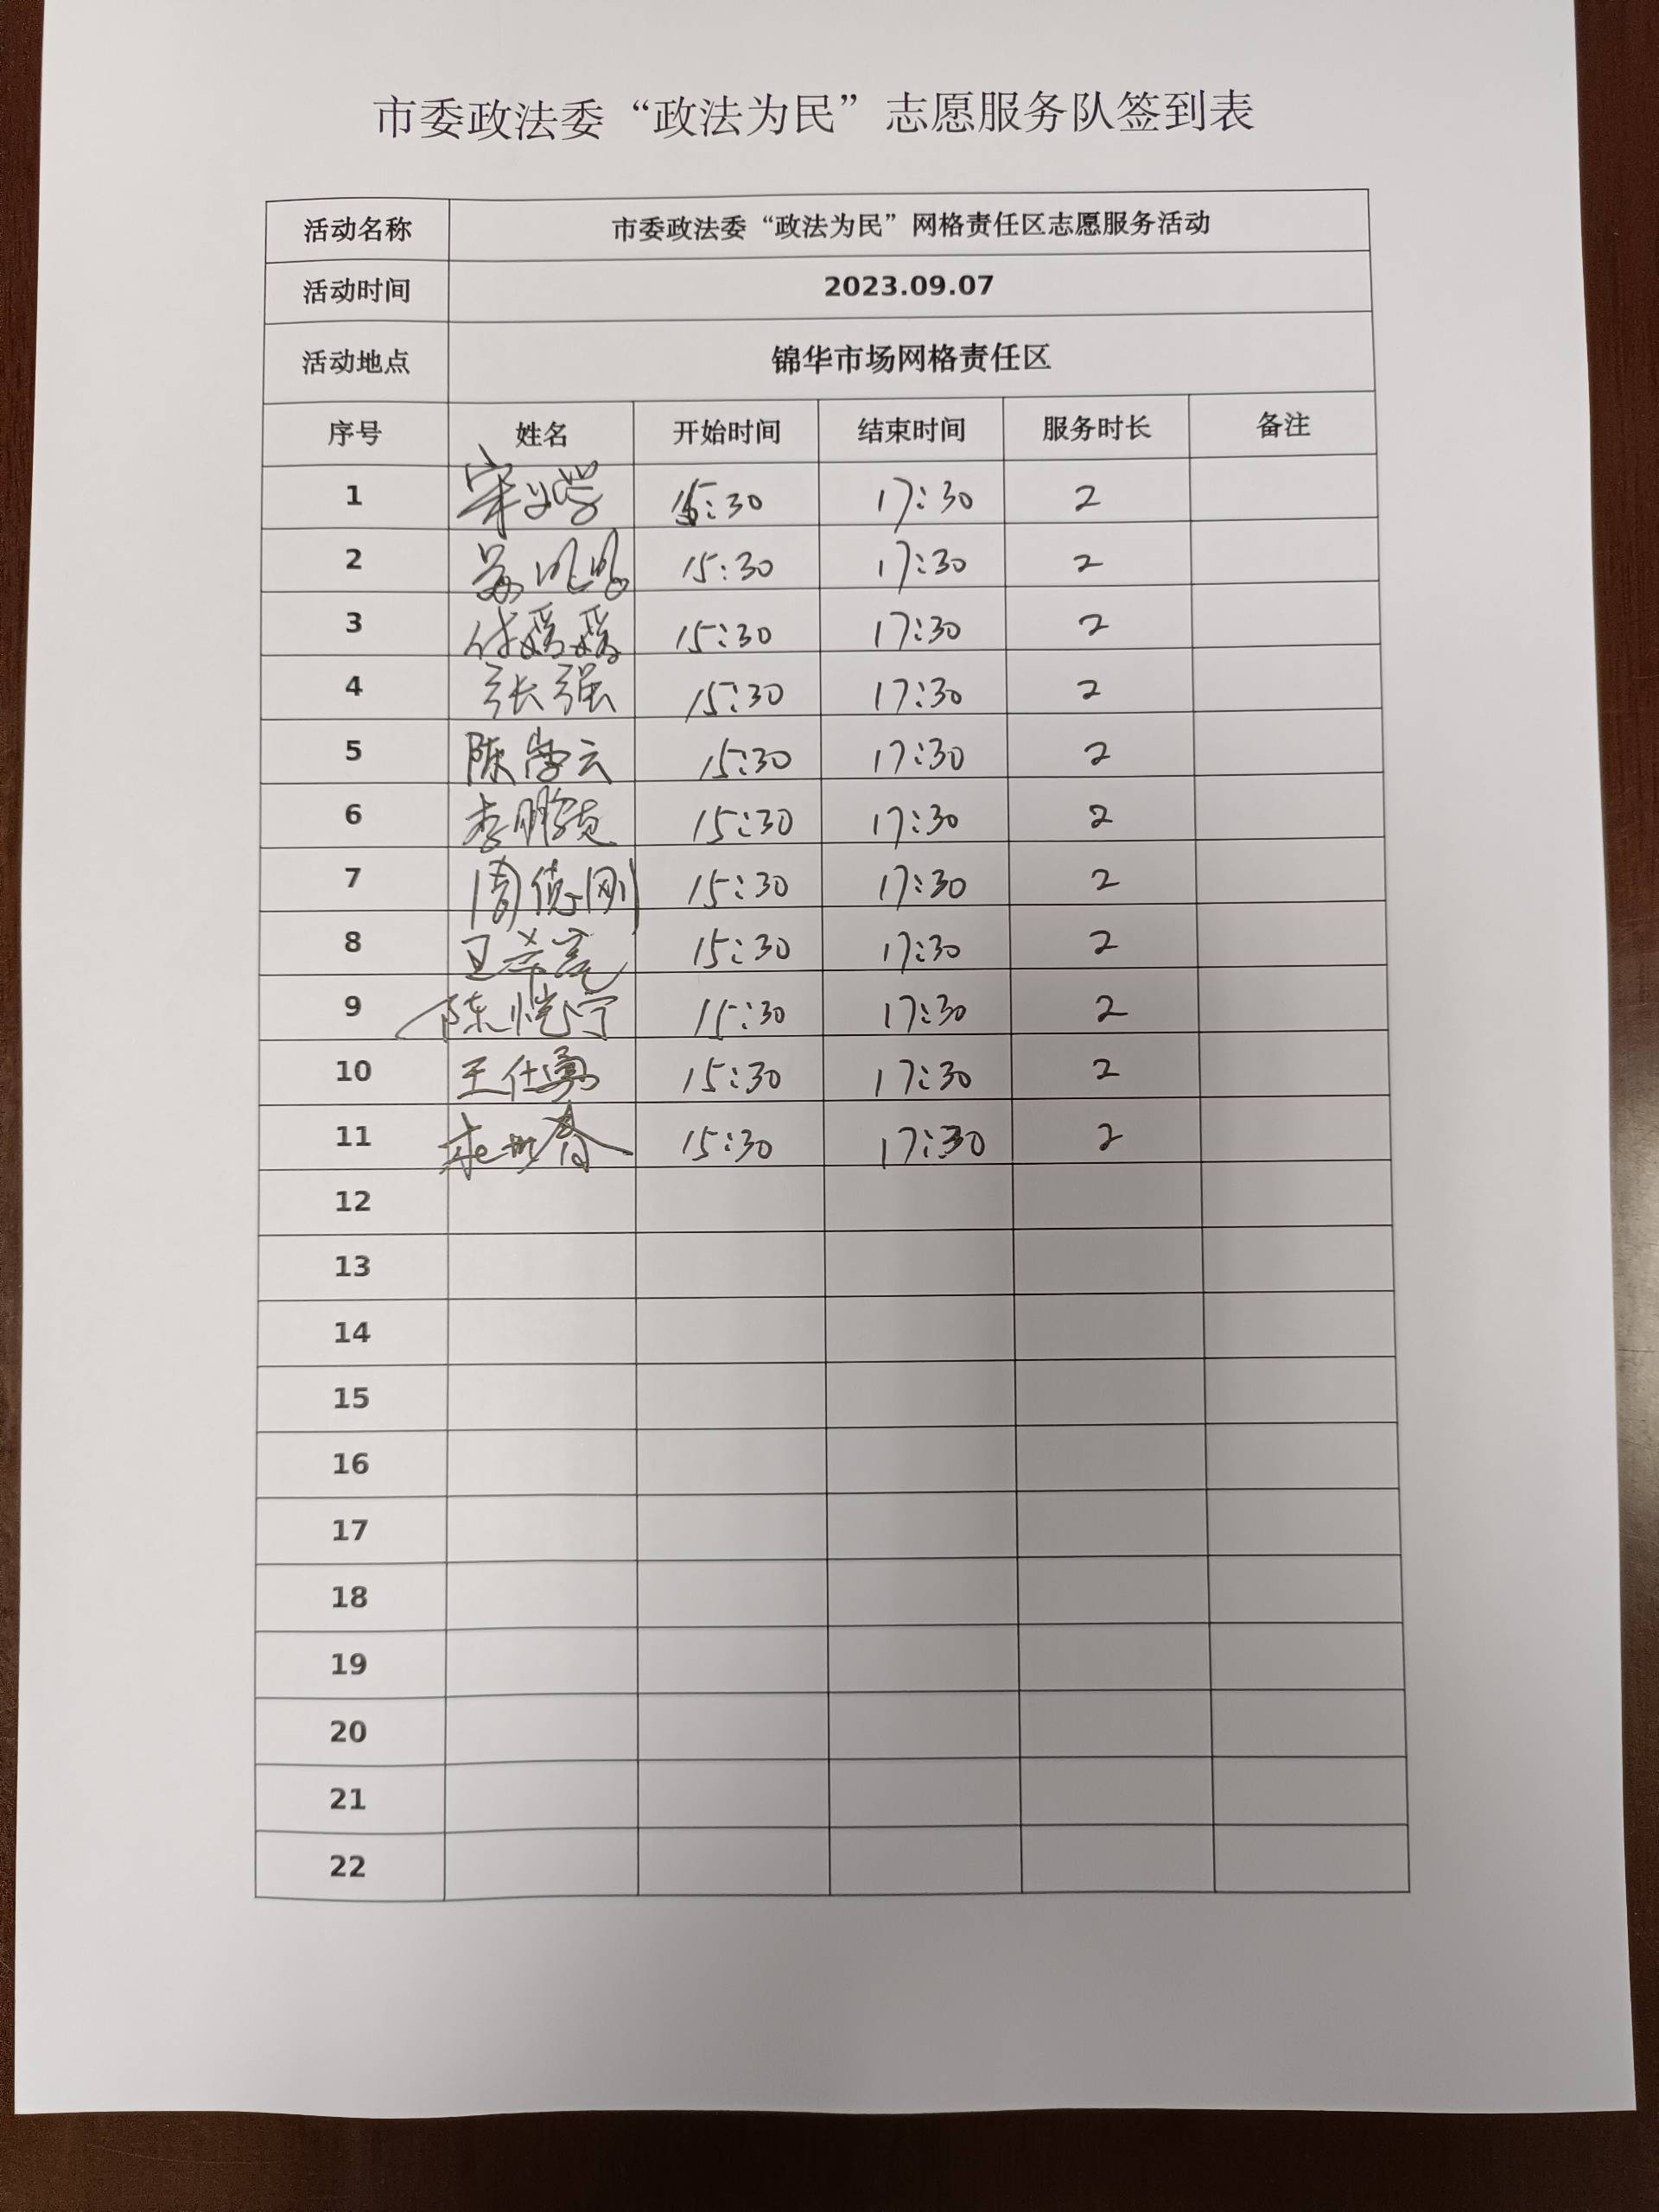 市委政法委“政法为民”志愿服务队签到表
活动名称 市委政法委“政法为民”网格责任区志愿服务活动
活动时间 2023.09.07
活动地点 锦华市场网格责任区
序号 姓名 开始时间 结束时间 服务时长 备注
1 15:30 17:30 2
2 15:30 17:30 2
3 付媛媛 15:30 17:30 2
4 张强 15:30 17:30 2
5 陈学云 15:30 17:30 2
6 李鹏 15:30 17:30 2
7 周德刚 15:30 17:30 2
8 15:30 17:30 2
9 陈恺宁 15:30 17:30 2
10 王仕勇 15:30 17:30 2
11 15:30 17:30 2
12
13
14
15
16
17
18
19
20
21
22